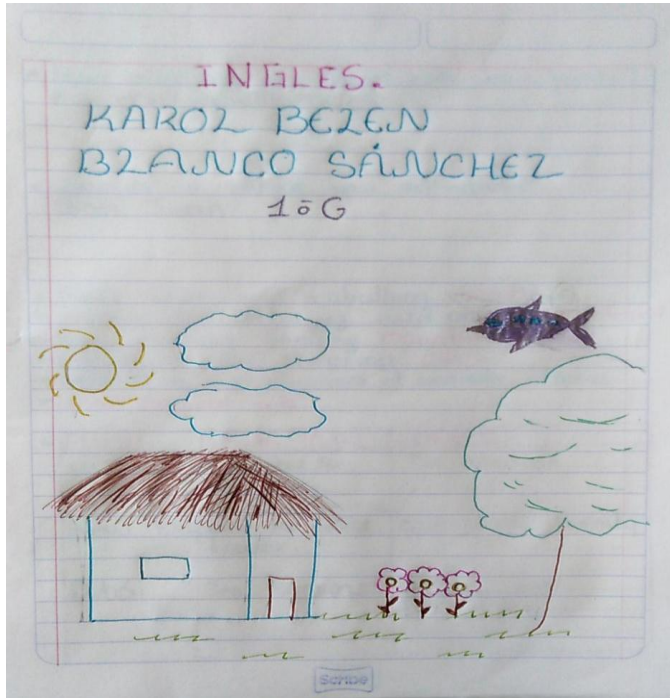 INGLES.
KAROL BELEN
BLANCO SÁNCHEZ
1ōG
Scribe